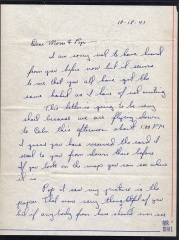 10-18-43
Dear Mom & Pop.
I am sorry not to have heard
from you before now but it seems
to me that you all have got the
same habit as I have of not writing
This letter is going to be very
short because we are flying down
to Cuba this afternoon about 1:00 PM
I guess you have received the card I
sent to you from down there before
If you look on the maps you can see where
it is.
Pop I saw my picture in the
paper. That was very thoughtful of you
but if any body from here should ever see